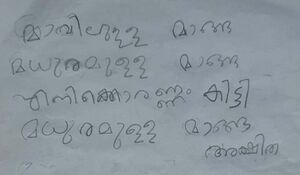 മാവിലുള്ള മാങ്ങ
മധുരമുള്ള മാങ്ങ
എനിക്കൊരണ്ണം കിട്ടി
മധുരമുള്ള മാങ്ങ
അക്ഷിത